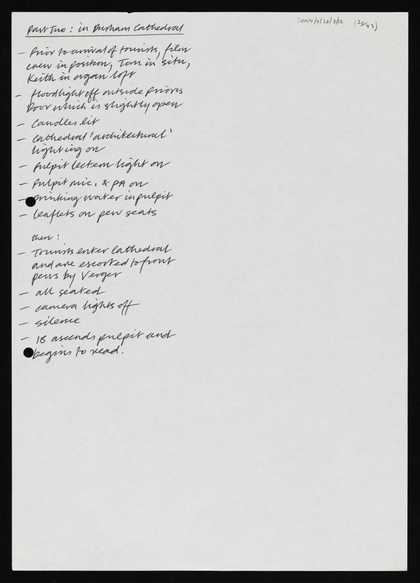 Part Two : in Durham Cathedral
– Prior to arrival of tourists, film
crew in position, Tom in situ,
Keith in organ loft
– floodlight off outside Priors
Door which is slightly open
– Candles lit
– Cathedral 'architectural'
lighting on
– Pulpit lectern light on
– Pulpit mic. & PA on
– Drinking water in pulpit
– leaflets on pew seats
then :
– Tourists enter Cathedral
and are escorted to front
pews by Verger
– all seated
– camera lights off
– silence
– IB ascends pulpit and
begins to read.